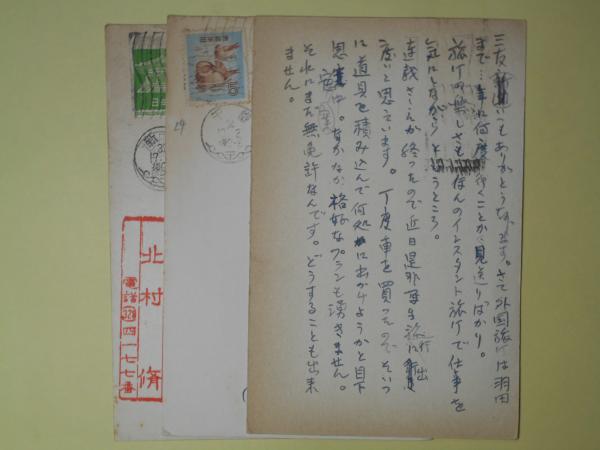 ありがとうございます。さて外国旅行は羽田
まで…年に何度行くことか、見送りばかり。
旅行の楽しさも ほんのインスタント旅行で仕事を
気にしながらというところ。
連載さし画が終ったので近日是非写生旅行に出
度いと思っています。丁度車を買ったのでそいつ
に道具を積み込んで何処にお出かけようかと目下
思案中。なかなか格好なプランも湧きません。
それにまだ無免許なんです。どうすることも出来
ません。
29
5
北村脩
電話 四一七七番